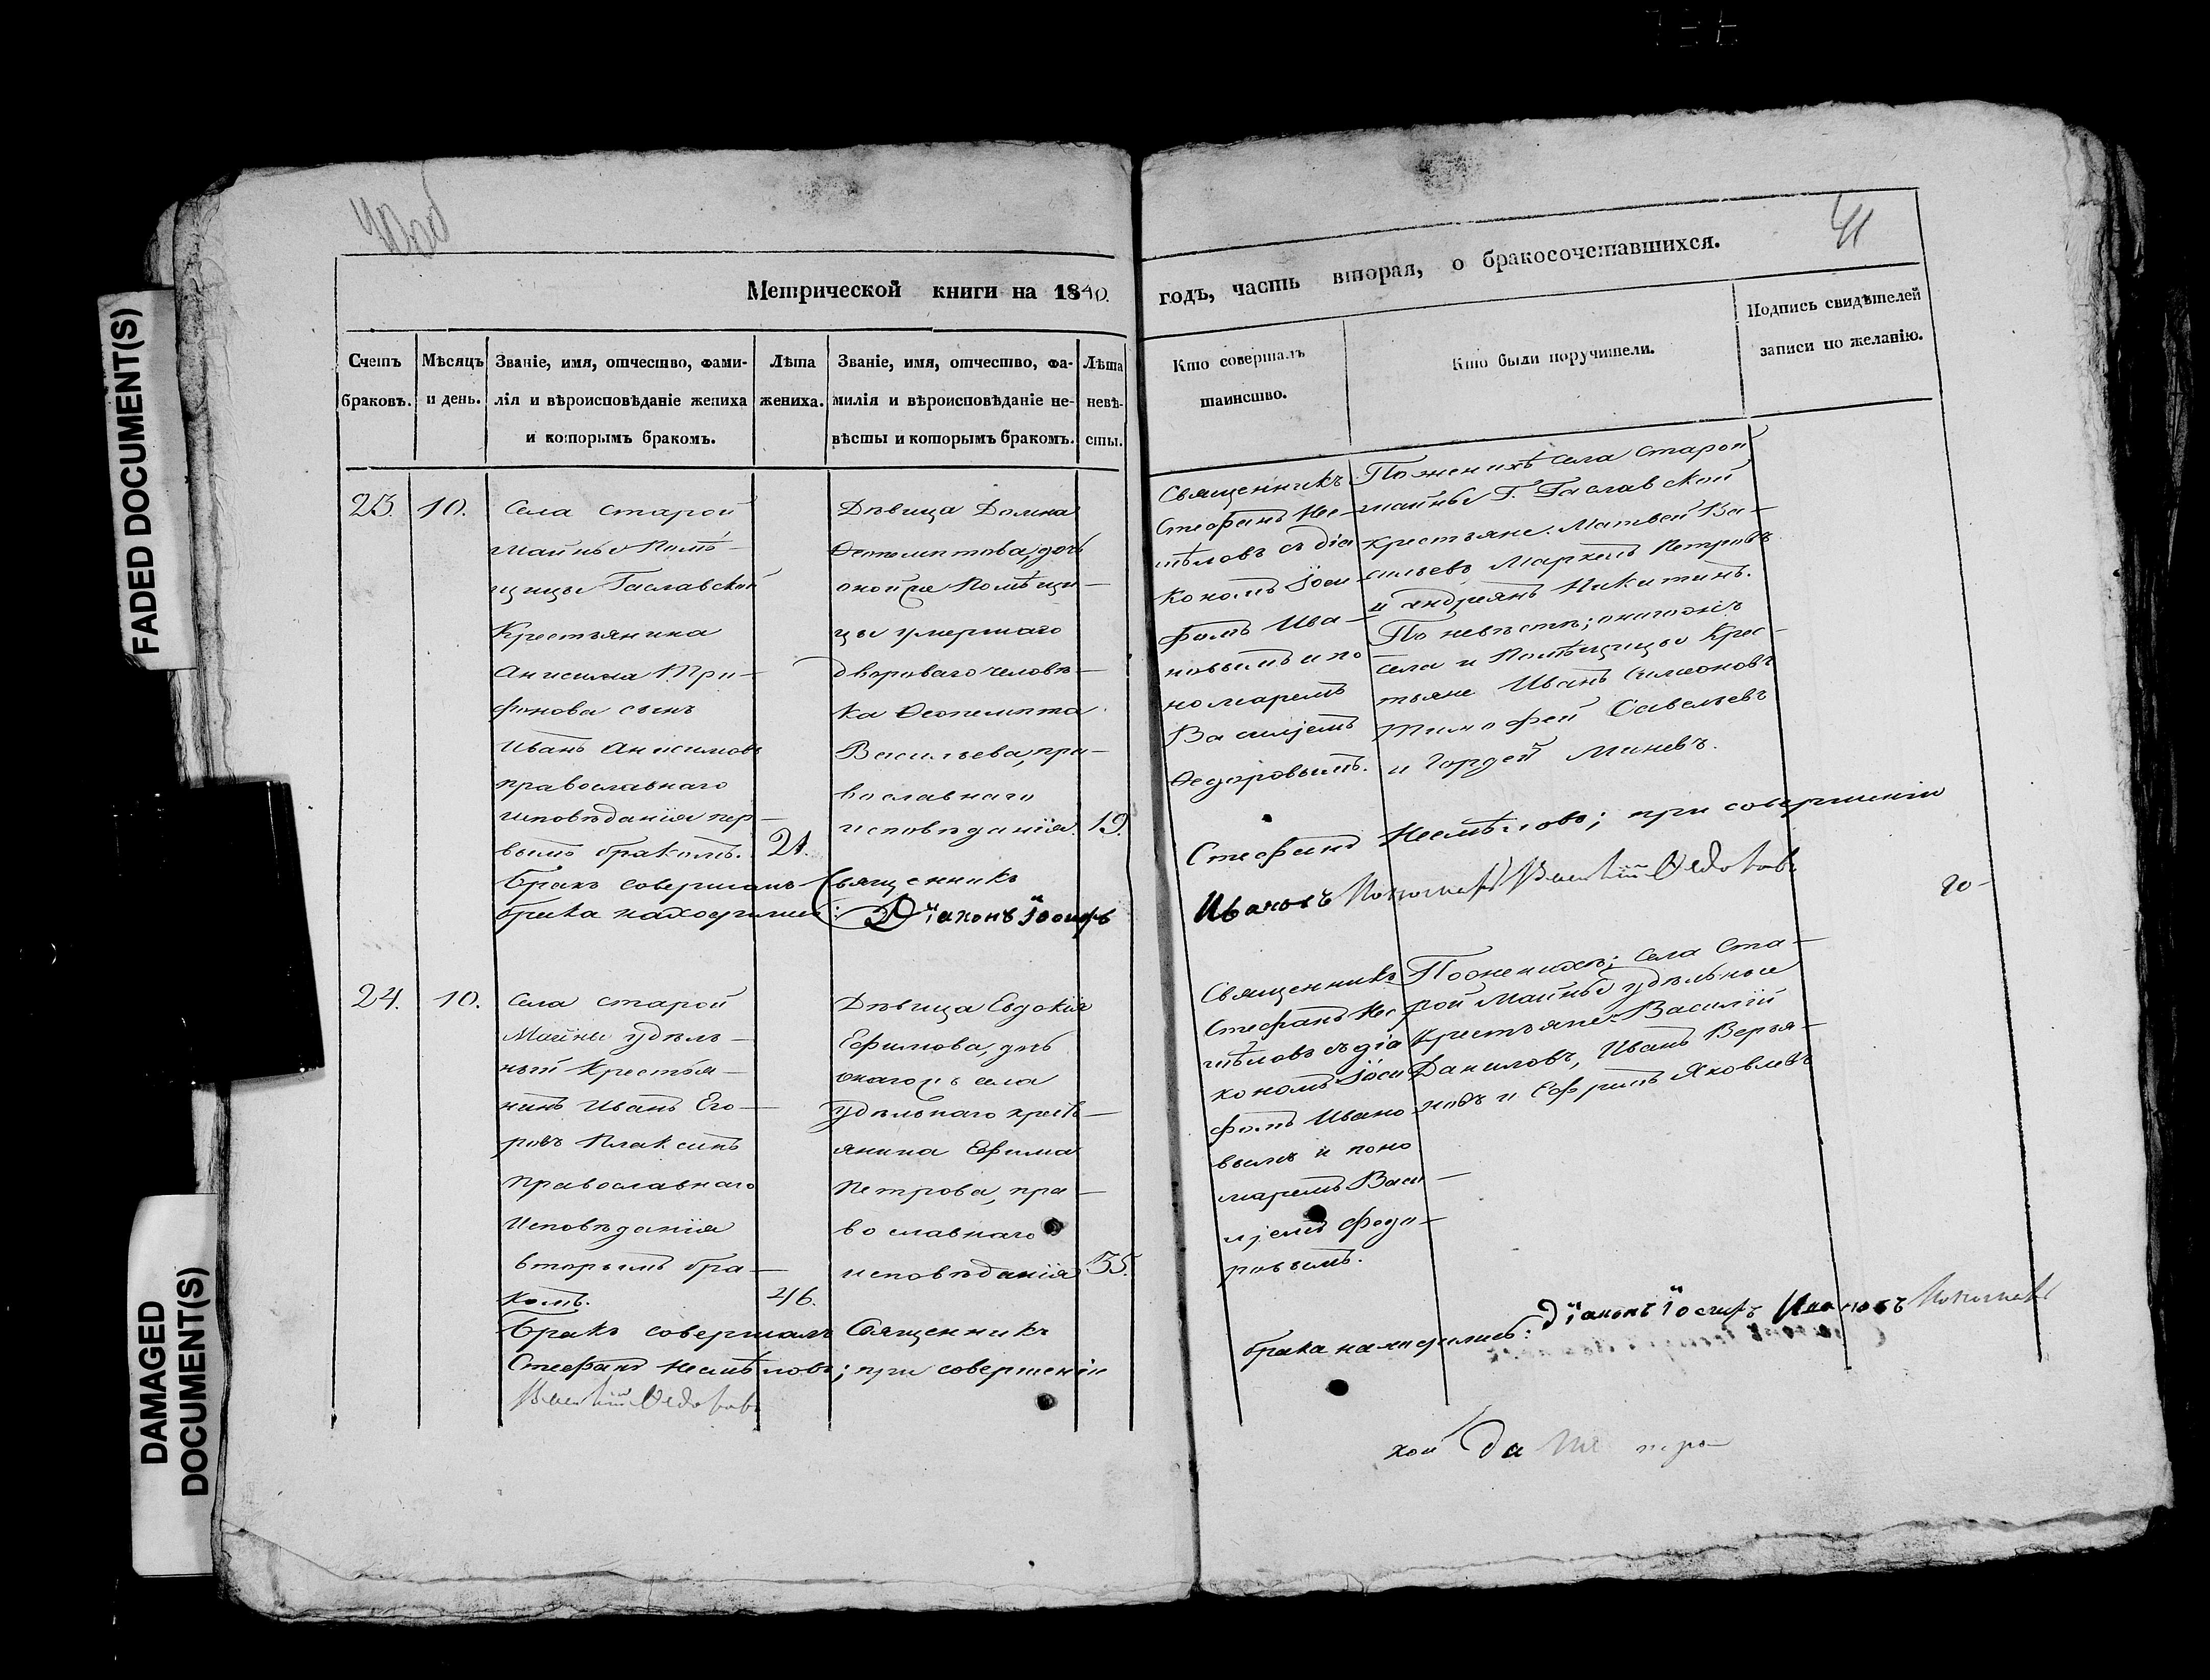 FADED DOCUMENT(S)
DAMAGED
DOCUMENT(S)
40об
41
Метрической книги на 1840.
годъ, часть вторая, о бракосочетавшихся.
Счетъ
браковъ.
Мѣсяцъ
и день.
Званіе, имя, отчество, фами-
лія и вѣроисповѣданіе жениха
и которымъ бракомъ.
Лѣта
жениха.
Званіе, имя, отчество, фа-
милія и вѣроисповѣданіе не-
вѣсты и которымъ бракомъ.
Лѣта
невѣ-
сты.
Кто совершалъ
таинство.
Кто были поручители.
Подпись свидѣтелей
записи по желанію.
23.
10.
Села Старой
Майны Помѣ-
щицы Гаславской
Крестьянина
Анисима Три-
фонова сынъ
Иванъ Анисимовъ
православнаго
исповѣданія пер-
вымъ бракомъ.
21.
Дѣвица Домна
Ѳеопемптова, дочь
оной же Помѣщи-
цы умершаго
двороваго человѣ-
ка Ѳеопемпта
Васильева, пра-
вославнаго
исповѣданія.
19.
Священникъ
Стефанъ Нес-
мѣловъ съ діа
кономъ Іоси-
фомъ Ива-
новымъ и по-
номаремъ
Василјемъ
Ѳедоровымъ.
По женихѣ села Старой
майны Г. Гаславской
крестьяне. Матвей Ва-
сильевъ Маркелъ Петровъ
и Андреянъ Никитинъ.
По невѣстѣ; онагожъ
села и Помѣщицы Крес-
тьяне Иванъ Симеоновъ
Тимофей Савельевъ
и Гордей Миневъ.
Бракъ совершалъ Священникъ
Стефанъ Несмѣловъ; при совершеніи
брака находились: Діаконъ Іосифъ
Ивановъ Пономарь Василій Ѳедоровъ
24.
10.
Села Старой
Майны удѣль-
ный Крестья-
нинъ Иванъ Его-
ровъ Плаксинъ
Православнаго
Исповѣданія
вторымъ бра-
комъ.
46.
Дѣвица Евдокія
Ефимова, дочь
онагожъ села
удѣльнаго крест-
янина Ефима
Петрова, пра-
вославнаго
исповѣданія
35.
Священникъ
Стефанъ Нес
мѣловъ съ діа
кономъ Іоси
фомъ Ивано
вымъ и поно
маремъ Васи-
лјемъ Федо-
ровымъ.
По женихѣ; села Ста-
рой Майны удѣльные
Крестьяне Василій
Даниловъ, Иванъ
и Ефримъ Яковлевъ
Бракъ совершалъ Священникъ
Стефанъ Несмѣловъ; при совершеніи
брака находились: Діаконъ Іосифъ Ивановъ Пономарь
Василій Ѳедоровъ
кой Да